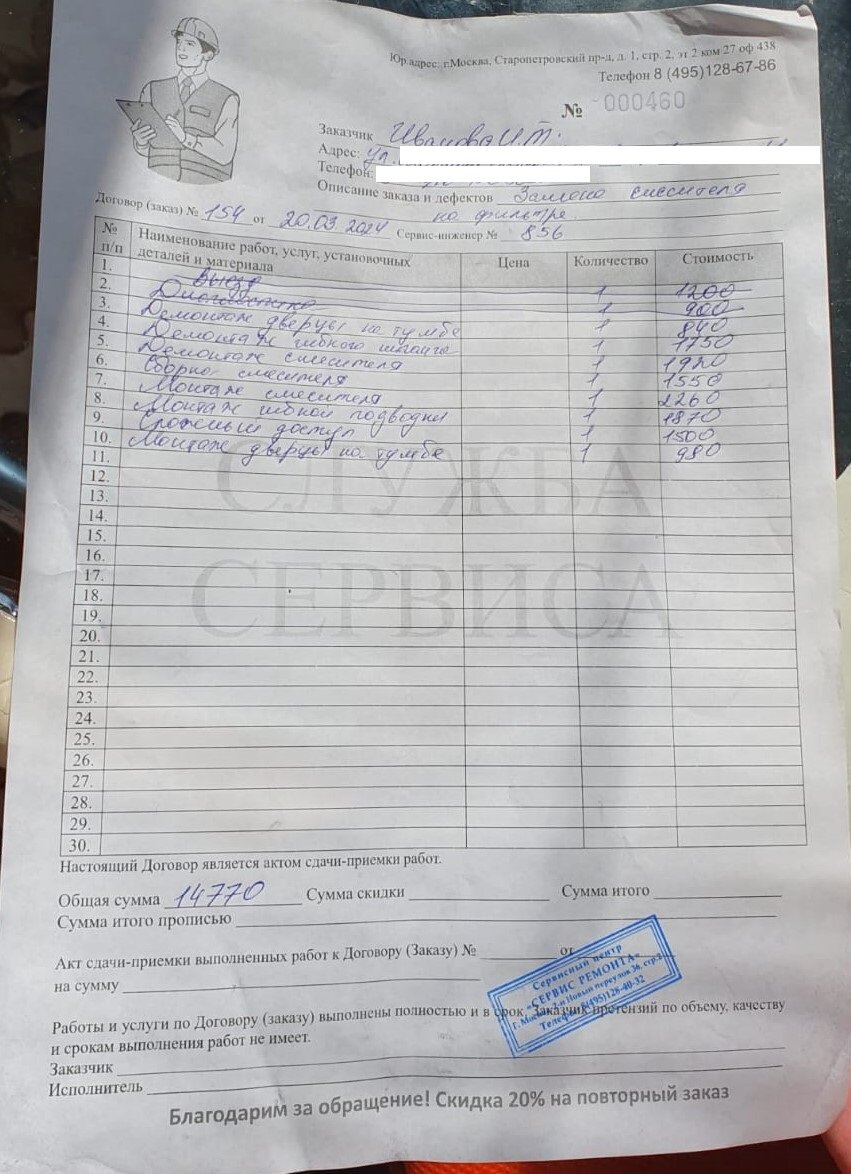 Юр адрес: г.Москва, Старопетровский пр-д, д. 1, стр. 2, эт 2 ком 27 оф 438
Телефон 8 (495)128-67-86
№ 000460
Заказчик Иванова И.Т.
Адрес: ул.
Телефон:
Описание заказа и дефектов Замена смесителя
на фильтре.
Договор (заказ) № 154 от 20.03.2024 Сервис-инженер № 856
№ п/п Наименование работ, услуг, установочных деталей и материала Цена Количество Стоимость
1. Выезд 1 1200
2. Диагностика 1 900
3. Демонтаж дверцы на тумбе 1 840
4. Демонтаж гибкого шланга 1 1750
5. Демонтаж смесителя 1 1920
6. Сборка смесителя 1 1550
7. Монтаж смесителя 1 2260
8. Монтаж гибкой подводки 1 1870
9. Сложный доступ 1 1500
10. Монтаж дверцы на тумбе 1 980
11.
12.
13.
14.
15.
16.
17.
18.
19.
20.
21.
22.
23.
24.
25.
26.
27.
28.
29.
30.
СЛУЖБА
СЕРВИСА
Настоящий Договор является актом сдачи-приемки работ.
Общая сумма 14770 Сумма скидки Сумма итого
Сумма итого прописью
Акт сдачи-приемки выполненных работ к Договору (Заказу) № от
на сумму
Сервисный центр
"СЕРВИС РЕМОНТА"
Г. Москва, 2-й Новый переулок 36, стр.2
Телефон: 8(495)128-40-32
Работы и услуги по Договору (заказу) выполнены полностью и в срок. Заказчик претензий по объему, качеству
и срокам выполнения работ не имеет.
Заказчик
Исполнитель
Благодарим за обращение! Скидка 20% на повторный заказ